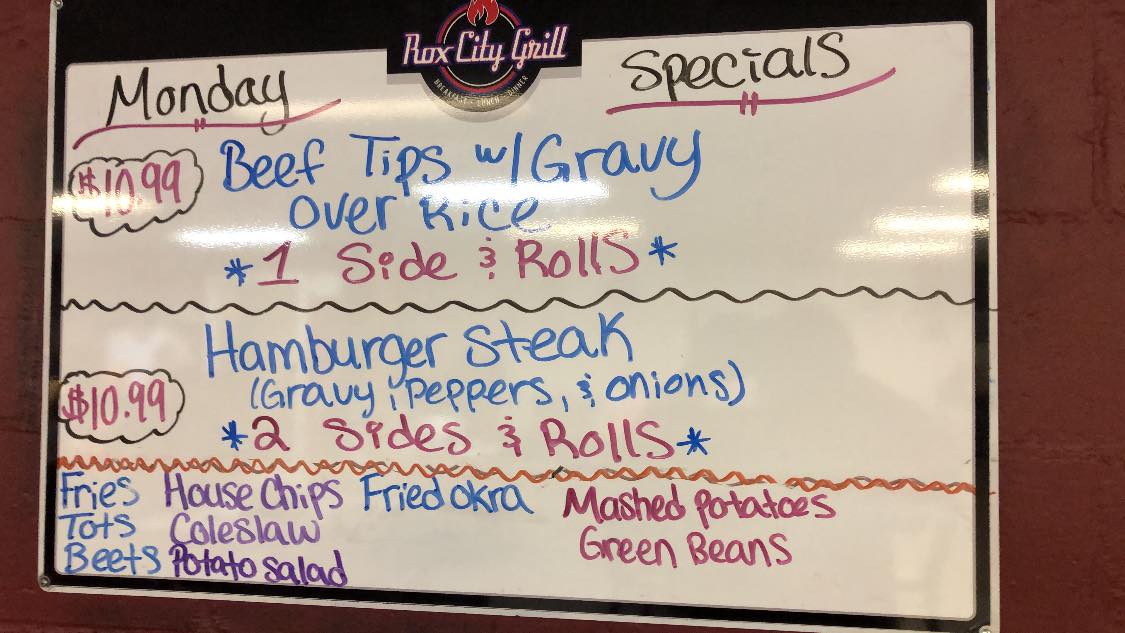 Rox City Grill
BREAKFAST • LUNCH • DINNER
Monday Specials
$10.99 Beef Tips w/ Gravy
over Rice
*1 Side & Rolls*
Hamburger Steak
$10.99 (Gravy, Peppers, & onions)
*2 Sides & Rolls*
Fries House Chips Fried okra Mashed Potatoes
Tots Coleslaw Green Beans
Beets Potato salad